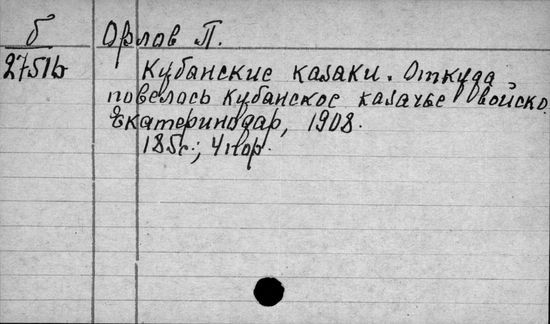 б Орлов П.
2751ь Кубанские казаки. Откуда
повелось Кубанское казачье войско.
Екатеринодар, 1908.
185с.; 4 пор.